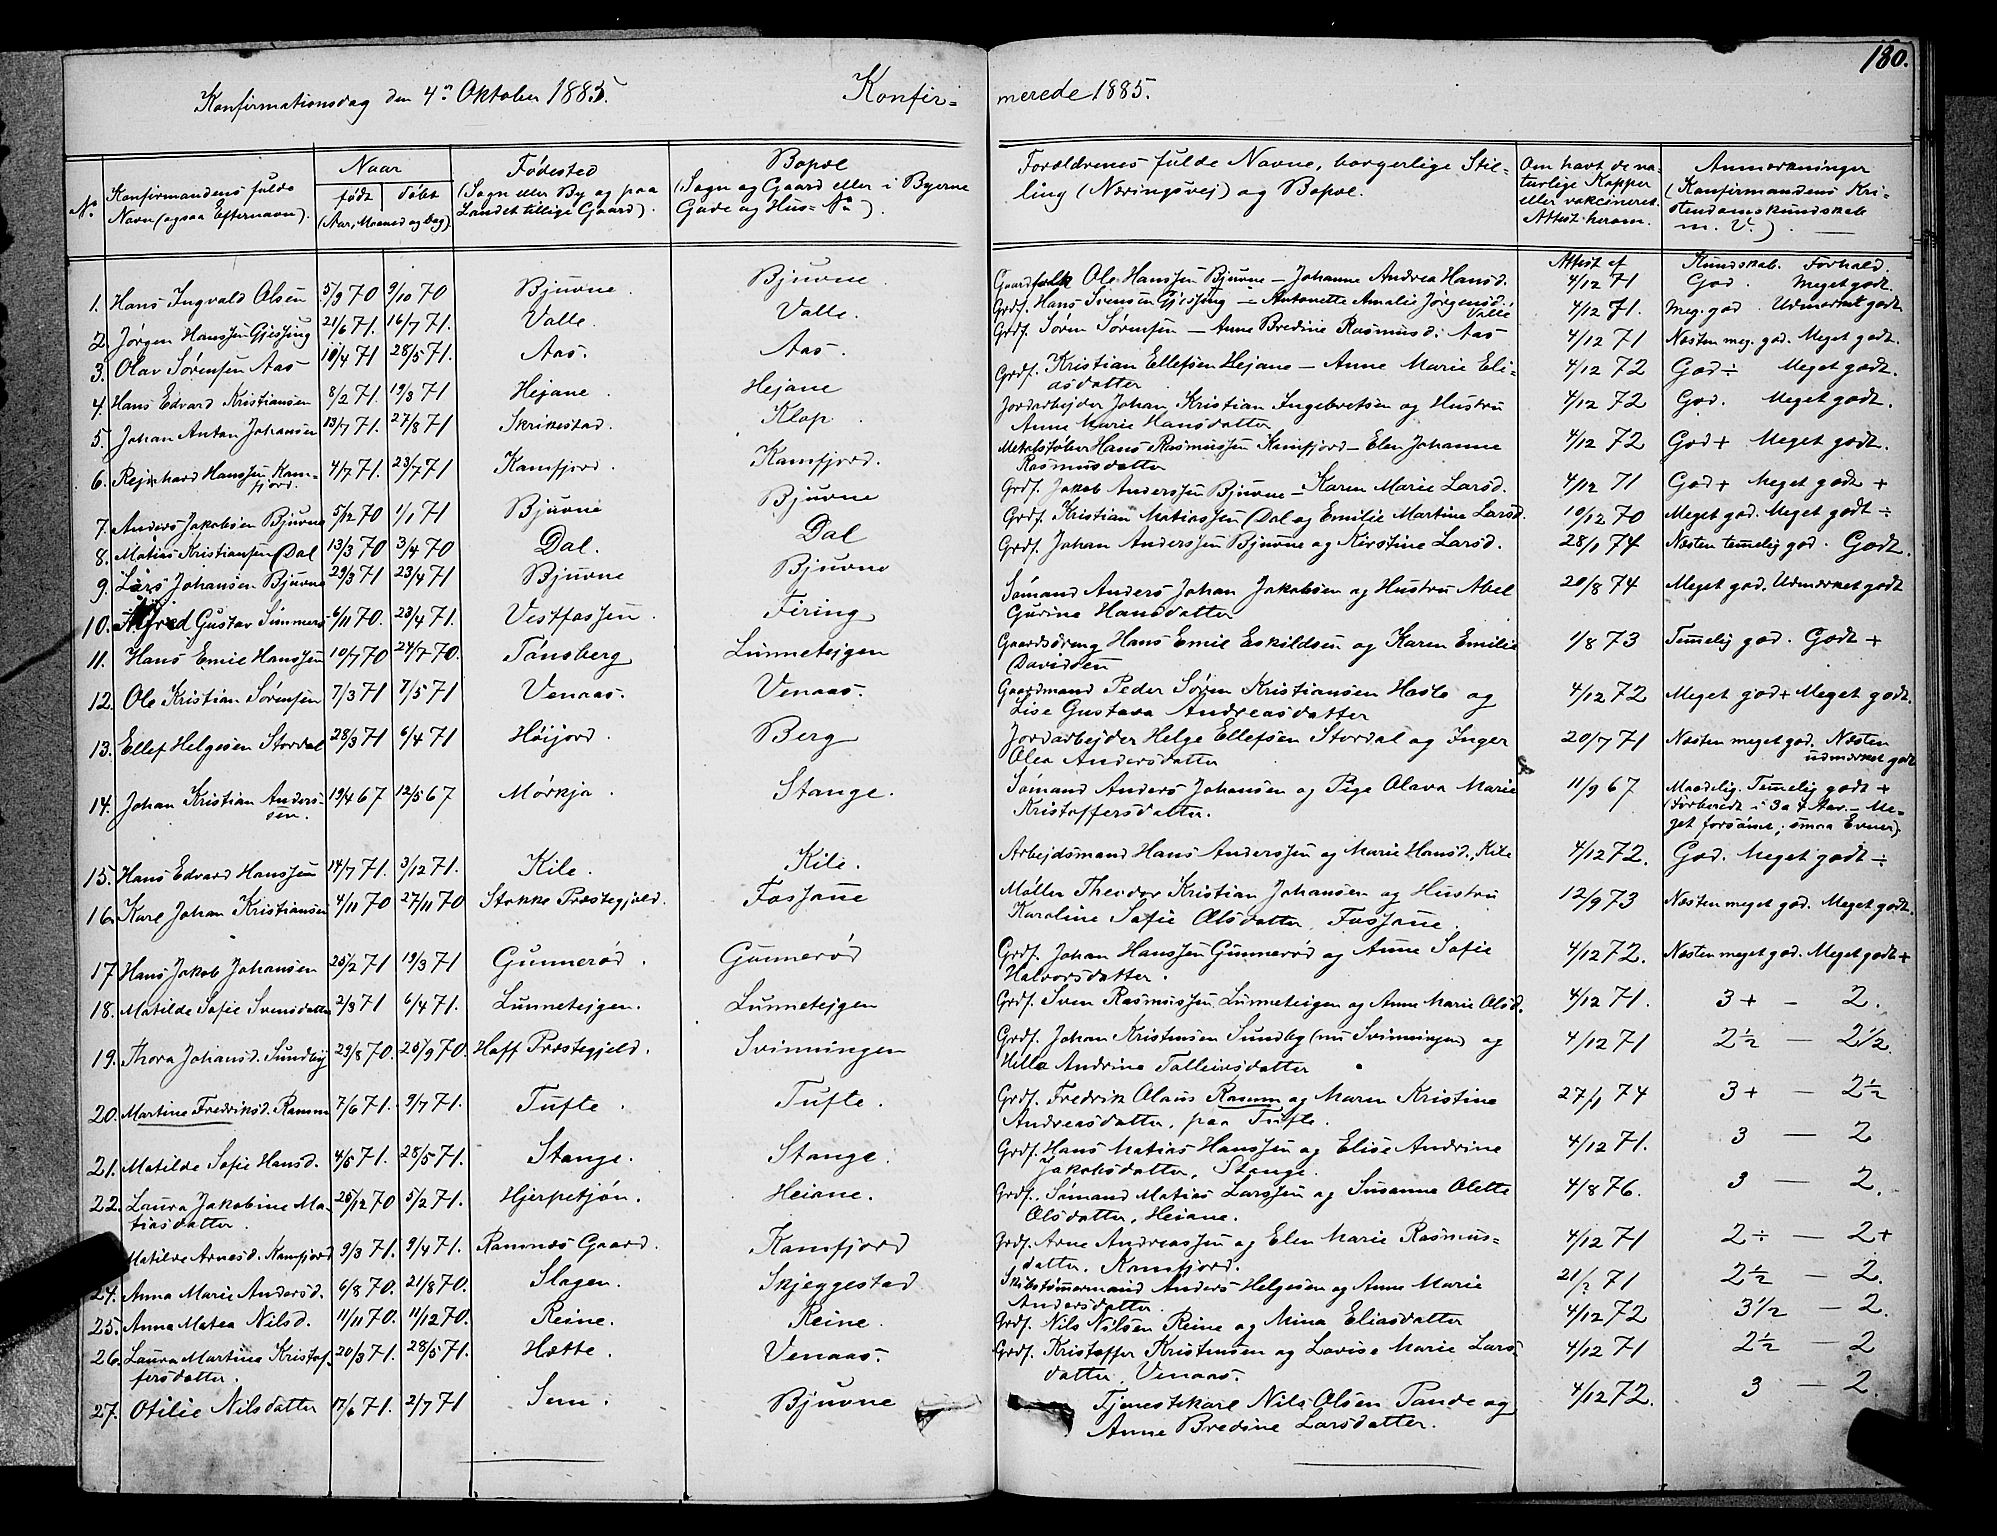 180.
Konfirmationsdag den 4de Oktober 1885. Konfir= merede 1885.
No Konfirmandens fulde Navn (ogsaa Efternavn). Naar født døbt (Aar, Maaned og Dag) Fødested (Sogn eller By og paa Landet tillige Gaard). Bopæl (Sogn og Gaard eller i Byerne Gade og Hus=No). Forældrenes fulde Navne, borgerlige Stilling (Næringsvej) og Bopæl. Om havt de naturlige Kopper eller vakcineret. Attest herom. Anmærkninger (Konfirmandens Kristendomskundskab m. V.)
Attest af Kundskab. Forhold.
1. Hans Ingvald Olsen 5/9 70 9/10 70 Bjuvne. Bjuvne. Gaardfolk Ole Hanssen Bjuvne — Johanne Andrea Hansd. 4/12 71 God. Meget godt.
2. Jørgen Hanssen Gjessing 21/6 71. 16/7 71. Valle. Valle. Grdf. Hans Svensen Gjessing — Antonette Amalie Jørgensd. Valle 4/12 71. Meg. god. Udmærket godt
3. Olav Sørensen Aas 10/4 71 28/5 71. Aas. Aas. Grdf. Søren Sørensen — Anne Bredine Rasmusd. Aas 4/12 71 Næsten meg. god. Meget godt.
4. Hans Edvard Kristiansen 8/2 71. 19/3 71 Hejane. Hejane Grdf. Kristian Ellefsen Hejane — Anne Marie Eli-
asdatter 4/12 72 God ÷ Meget godt.
5. Johan Anton Johansen 13/7 71. 27/8 71 Skrikestad. Klop. Jordarbejder Johan Kristian Ingebretsen og Hustru
Anne Marie Hansdatter 4/12 72 God. Meget godt.
6. Rejnhard Hanssen Kam-
fjord. 4/7 71. 23/7 71 Kamfjord. Kamfjord. Hans Rasmussen Kamfjord — Elen Johanne
Rasmusdatter 4/12 72 God + Meget godt.
7. Anders Jakobsen Bjuvne 5/12 70 1/1 71 Bjuvne Bjuvne Grdf. Jakob Anderssen Bjuvne — Karen Marie Larsd. 4/12 71 God + Meget godt +
8. Matias Kristiansen Dal 13/3 70 3/4 70 Dal. Dal Grdf. Kristian Matiassen Dal og Emilie Martine Larsd. 10/12 70 Meget god. Meget godt ÷
9. Lars Johansen Bjuvne 29/3 71 23/4 71 Bjuvne Bjuvne Grdf. Johan Anderssen Bjuvne og Kirstine Larsd. 28/1 74 Næsten temmelig god. Godt.
10. Alfred Gustav Simmers 6/11 70. 23/4 71. Vestfossen. Firing Sømand Anders Johan Jakobsen og Hustru Abel
Gurine Hansdatter 20/8 74 Meget god. Udmærket godt
11. Hans Emil Hanssen 10/7 70 24/7 70. Tønsberg Lunnetejgen Gaardsdreng Hans Emil Eskildsen og Karen Emilie
Davidsen 1/8 73 Temmelig god. Godt +
12. Ole Kristian Sørensen 7/3 71 7/5 71 Venaas. Venaas. Gaardmand Peder Søren Kristiansen Hasle og
Lise Gustava Andreasdatter 4/12 72 Meget god + Meget godt.
13. Ellef Helgesen Stordal 28/3 71 6/4 71 Høijord. Berg Jordarbejder Helge Ellefsen Stordal og Inger
Olea Andersdatter 20/7 71 Næsten meget god. Næsten
udmærket godt
14. Johan Kristian Anders-
sen. 19/4 67 12/5 67 Mørkja. Stange. Sømand Anders Johansen og Pige Olava Marie
Kristoffersdatter. 11/9 67 Maadelig. Temmelig godt +
(Forberedt i 3 a 4 Aar. — Me-
get forsømt; smaa Evner).
15. Hans Edvard Hanssen 14/7 71. 3/12 71. Kile. Kile. Arbejdsmand Hans Anderssen og Marie Hansd., Kile 4/12 72. God. Meget godt ÷
16. Karl Johan Kristiansen 4/11 70 27/11 70 Stokke Præstegjeld. Fossane Møller Theodor Kristian Johansen og Hustru
Karoline Sofie Olsdatter, Fossane. 12/9 73 Næsten meget god. Meget godt.
17. Hans Jakob Johansen 25/2 71 19/3 71 Gunnerød. Gunnerød Grdf. Johan Hanssen Gunnerød og Anne Sofie
Halvorsdatter. 4/12 72. Næsten meget god. Meget godt +
18. Matilde Sofie Svensdatter 2/3 71 6/4 71. Lunnetejgen. Lunnetejgen Grdf. Sven Rasmussen Lunneteigen og Anne Marie Olsd. 4/12 71. 3 + — 2.
19. Thora Johansd. Sundby 29/8 70. 25/9 70. Hoff Præstegjeld. Svinningen Grdf. Johan Kristensen Sundby (nu Svinningen) og
Hilla Andrine Talleivsdatter 4/12 71 2 1/2 — 2 1/2
20. Martine Fredriksd. Ramm 7/6 71. 9/7 71. Tufte. Tufte. Grdf. Fredrik Olaus Ramm og Maren Kristine
Andreasdatter, paa Tufte. 27/1 74 3 + — 2 1/2
21. Matilde Sofie Hansd. 4/5 71. 28/5 71. Stange. Stange. Grdf. Hans Matias Hanssen og Elise Andrine
Jakobsdatter, Stange. 4/12 71. 3 — 2
22. Laura Jakobine Ma-
tiasdatter. 25/12 70 5/2 71. Hjerpetjøn. Heiane. Grdf. Sømand Matias Larssen og Susanne Olette
Olsdatter, Heiane. 4/8 76. 3 — 2.
Matilde Arnesd. Kamfjord 9/3 71. 9/4 71. Ramnæs Gaard. Kamfjord Grdf. Arne Andreassen og Elen Marie Rasmus-
datter. Kamfjord. 4/12 71 2 ÷ — 2 +
24. Anna Marie Andersd. 6/8 70. 21/8 70. Slagen. Skjeggestad Skibstømmermand Anders Helgesen og Anne Marie
Andersdatter. 21/? 71 2 1/2 — 2.
25. Anna Matea Nilsd. 11/11 70. 11/12 70. Reine. Reine. Grdf. Nils Nilsen Reine og Mina Eliasdatter 4/12 72 3 1/2 — 2.
26. Laura Martine Kristof-
fersdatter. 20/3 71. 28/5 71. Hætte. Venaas. Grdf. Kristoffer Kristensen og Lovise Marie Lars-
datter, Venaas. 4/12 71 2 1/2 — 2
27. Otilie Nilsdatter 17/6 71. 2/7 71 Sem. Bjuvne Tjenestekarl Nils Olsen Tande og
Anne Bredine Larsdatter. 4/12 72. 3 — 2.